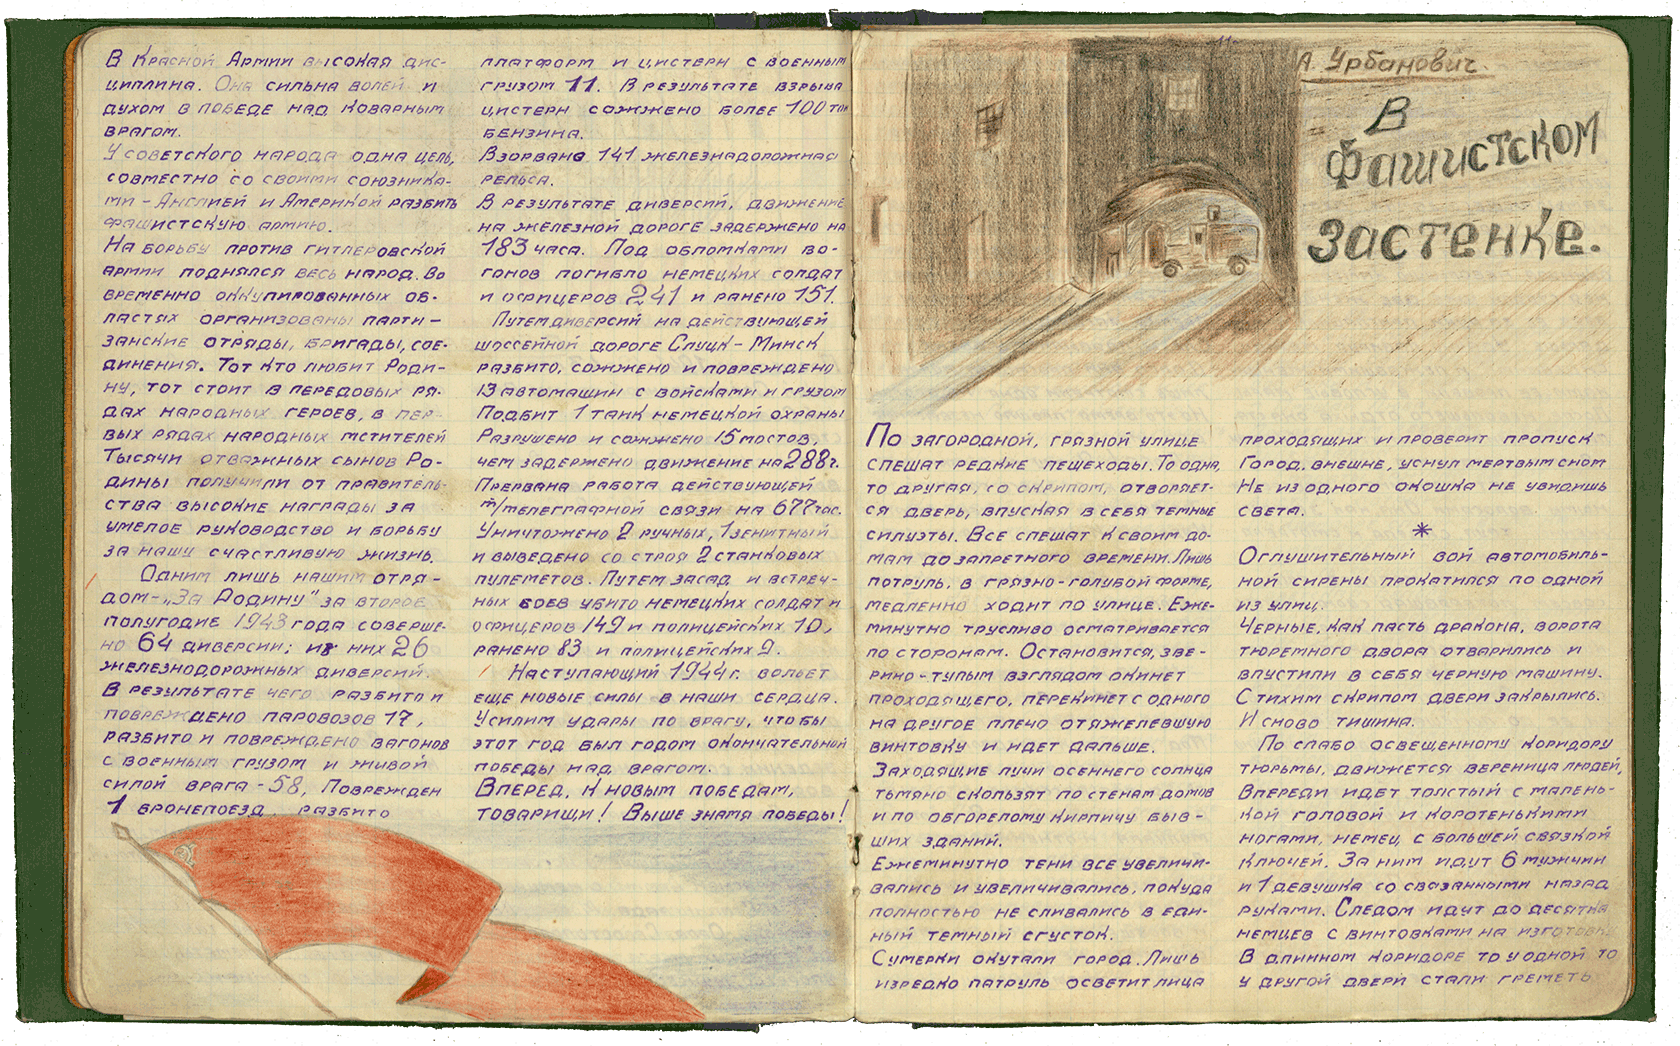 В Красной Армии высокая дис-
циплина. Она сильна волей и
духом в победе над коварным
врагом.
У советского народа одна цель,
совместно со своими союзника-
ми - Англией и Америкой разбить
фашистскую армию.
На борьбу против гитлеровской
армии поднялся весь народ. Во
временно оккупированных об-
ластях организованы парти-
занские отряды, бригады, сое-
динения. Тот кто любит Роди-
ну, тот стоит в передовых ря-
дах народных героев, в пер-
вых рядах народных мстителей
Тысячи отважных сынов Ро-
дины получили от правитель-
ства высокие награды за
умелое руководство и борьбу
за нашу счастливую жизнь.
Одним лишь нашим отря-
дом - „За Родину" за второе
полугодие 1943 года соверше-
но 64 диверсии; из них 26
железнодорожных диверсий.
В результате чего разбито и
повреждено паровозов 17,
разбито и повреждено вагонов
с военным грузом и живой
силой врага - 58, Поврежден
1 бронепоезд, разбито
платформ и цистерн с военным
грузом 11. В результате взрыва
цистерн сожжено более 100 тон
бензина.
Взорвано 141 железнадорожная
рельса.
В результате диверсий, движение
на железной дороге задержено на
183 часа. Под обломками во-
гонов погибло немецких солдат
и офицеров 241 и ранено 151.
Путем диверсий на действующей
шоссейной дороге Слуцк - Минск
разбито, сожжено и повреждено
13 автомашин с войсками и грузом
Подбит 1 танк немецкой охраны
Разрушено и сожжено 15 мостов,
чем задержено движение на 288 г.
Прервана работа действующей
т/телеграфной связи на 677 час.
Уничтожено 2 ручных, 1 зенитный
и выведено со строя 2 станковых
пулеметов. Путем засад и встреч-
ных боев убито немецких солдат и
офицеров 149 и полицейских 10,
ранено 83 и полицейских 9.
Наступающий 1944 г. вольет
еще новые силы в наши сердца.
Усилим удары по врагу, что бы
этот год был годом окончательной
победы над врагом.
Вперед, к новым победам,
товарищи! Выше знамя победы!
11
А. Урбанович.
В
Фашистском
застенке.
По загородной, грязной улице
спешат редкие пешеходы. То одна,
то другая, со скрипом, отворяет-
ся дверь, впуская в себя темные
силуэты. Все спешат к своим до-
мам до запретного времени. Лишь
потруль, в грязно-голубой форме,
медленно ходит по улице. Еже-
минутно трусливо осматривается
по сторонам. Остановится, зве-
рино-тупым взглядом окинет
проходящего, перекинет с одного
на другое плечо отяжелевшую
винтовку и идет дальше.
Заходящие лучи осеннего солнца
тьмяно скользят по стенам домов
и по обгорелому кирпичу быв-
ших зданий.
Ежеминутно тени все увеличи-
вались и увеличивались, покуда
полностью не сливались в еди-
ный темный сгусток.
Сумерки окутали город. Лишь
изредко патруль осветит лица
проходящих и проверит пропуск
Город, внешне, уснул мертвым сном
Не из одного окошка не увидишь
света.
*
Оглушительный вой автомобиль-
ной сирены прокатился по одной
из улиц.
Черные, как пасть дракона, ворота
тюремного двора отварились и
впустили в себя черную машину.
С тихим скрипом двери закрылись.
И сново тишина.
По слабо освещенному коридору
тюрьмы, движется вереница людей,
Впереди идет толстый с малень-
кой головой и коротенькими
ногами, немец, с большей связкой
ключей. За ним идут 6 мужчин
и 1 девушка со связанными назад
руками. Следом идут до десятка
немцев с винтовками на изготовку
В длинном коридоре то у одной то
у другой двери стали греметь